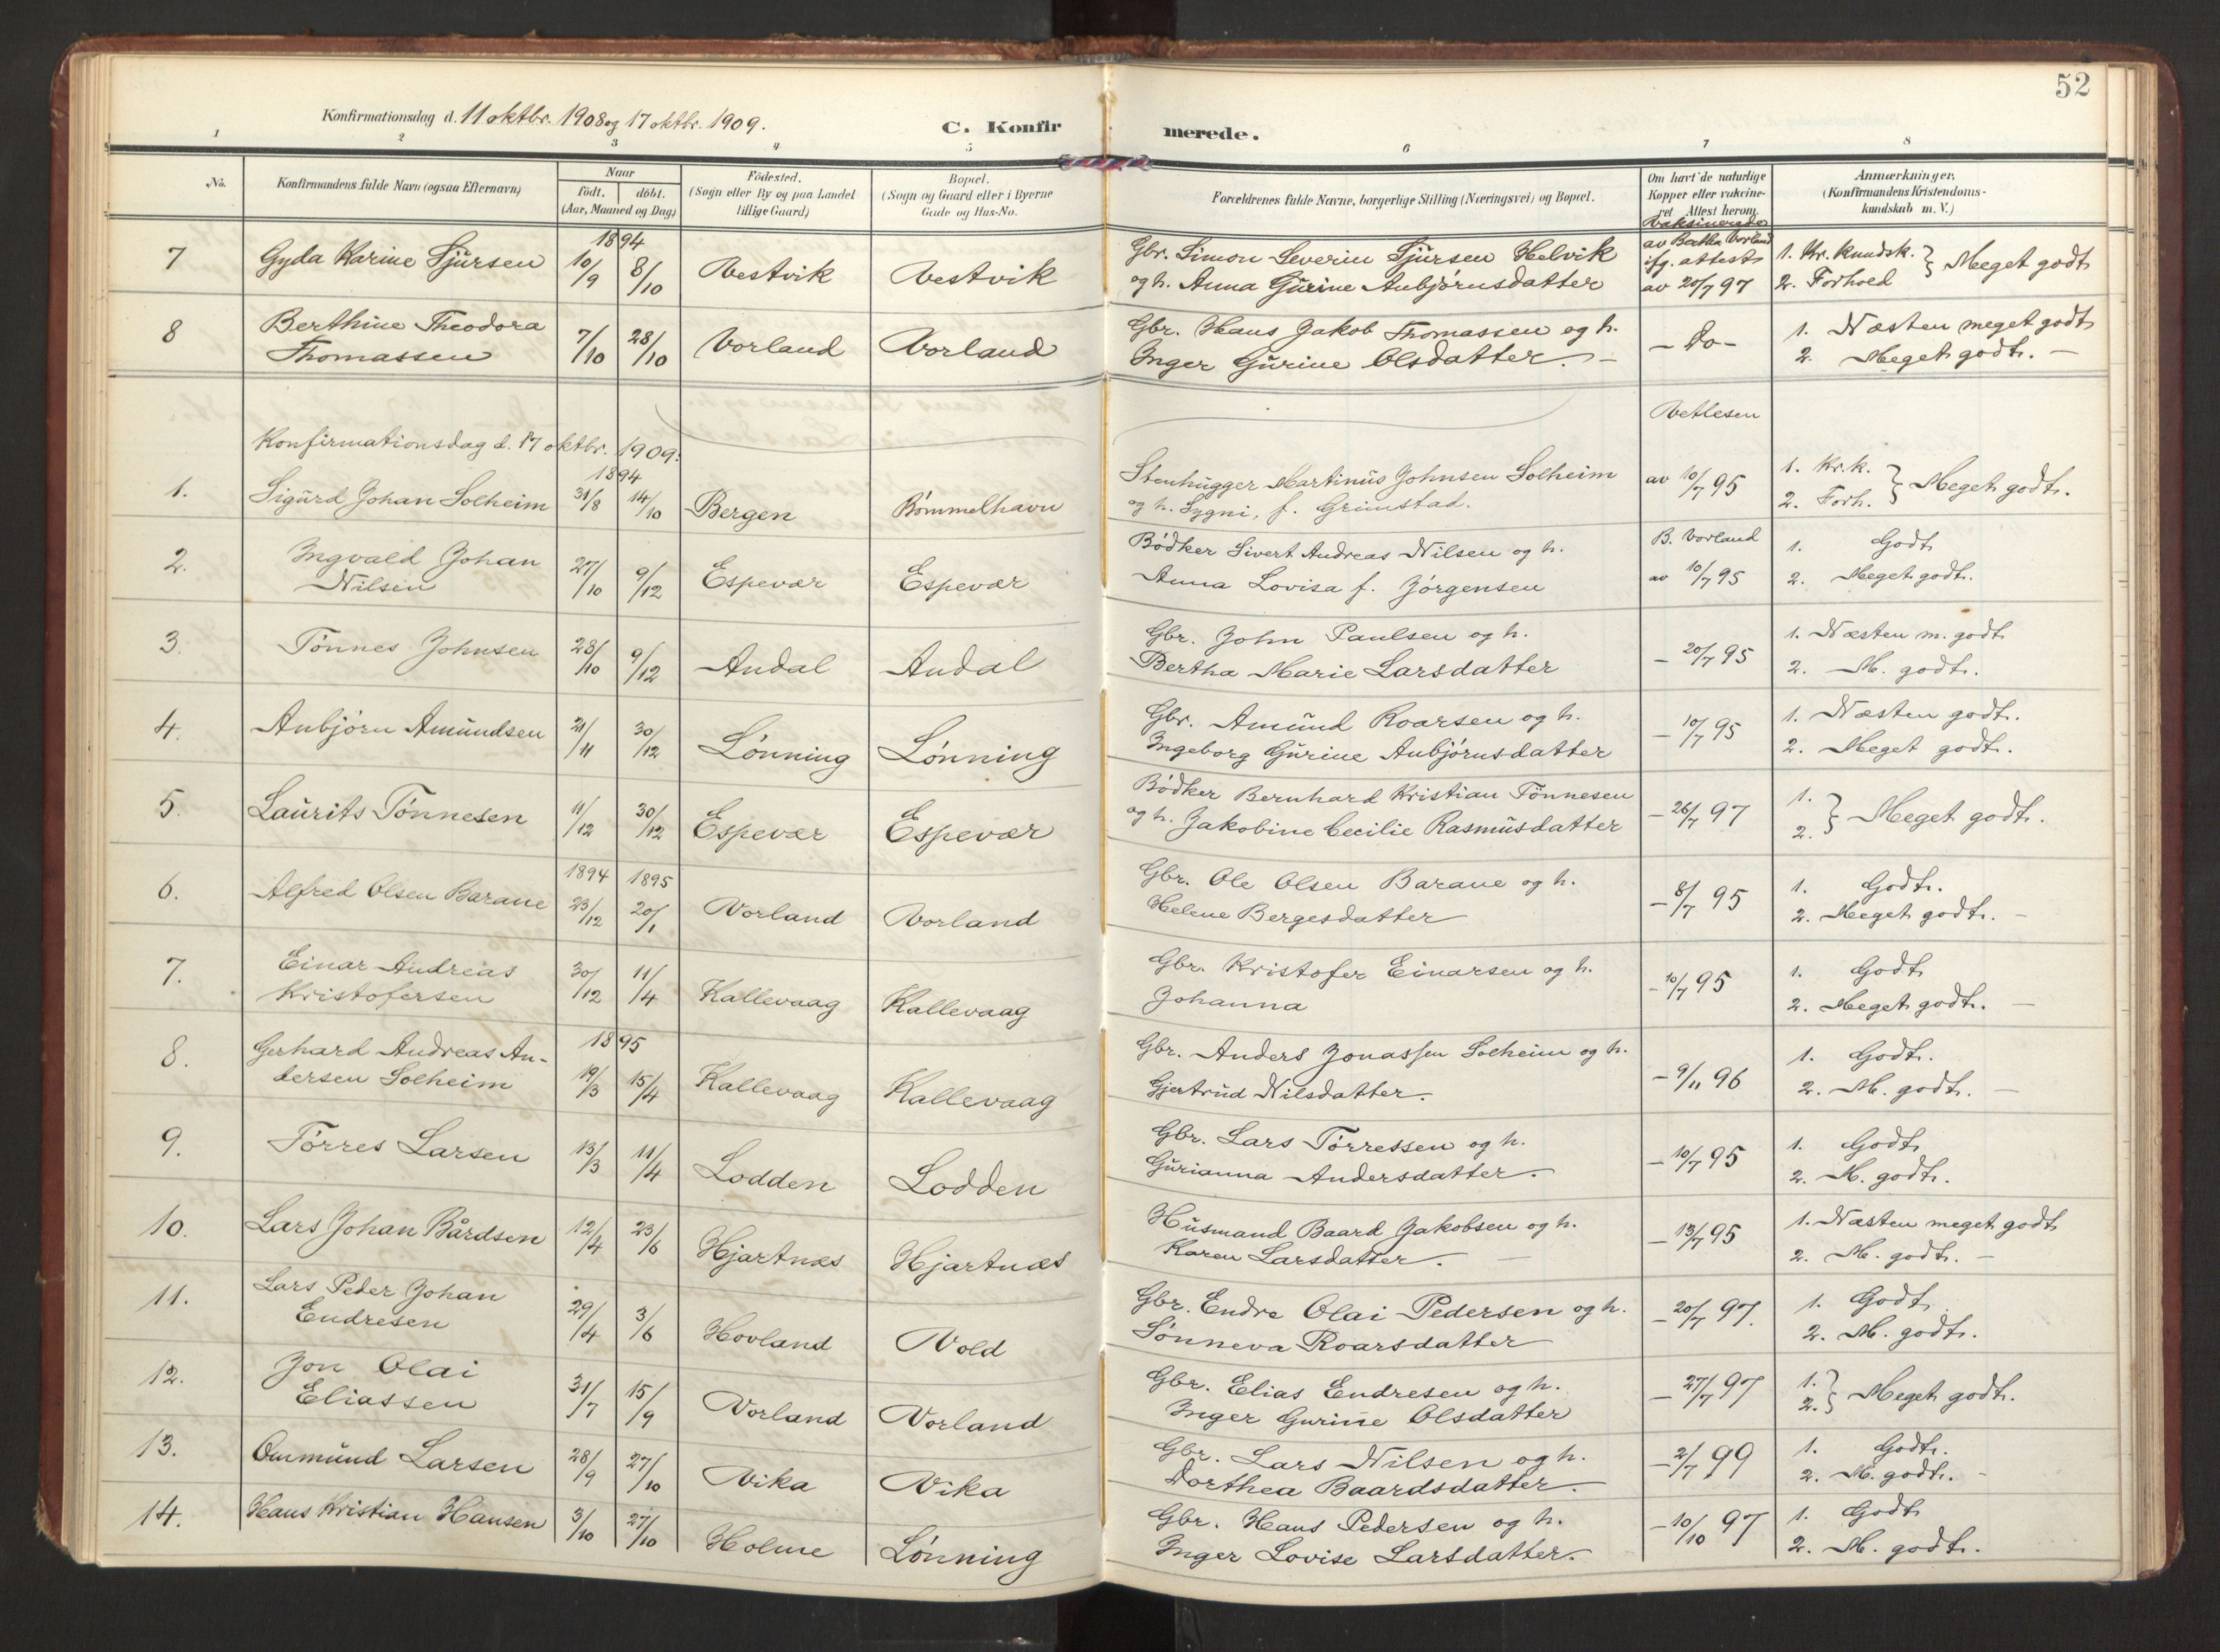 52
Konfirmationsdag d. 11 oktbr. 1908 og 17 oktbr. 1909.
C. Konfirmerede.
1 2 3 4 5 6 7 8
No. Konfirmandens fulde Navn (ogsaa Efternavn)
Naar födt. döbt. (Aar, Maaned og Dag)
Födested. (Sogn eller By og paa Landet tillige Gaard)
Bopæl. (Sogn og Gaard eller i Byerne Gade og Hus-No.
Forældrenes fulde Navne, borgerlige Stilling (Næringsvei) og Bopæl.
Om havt de naturlige Kopper eller vakcineret. Attest herom.
Anmærkninger. (Konfirmandens Kristendomskundskab m. V.)
Vaksinerade
1894 av Bertha Vorland
7 Gyda Karine Sjursen 10/9 8/10 Vestvik Vestvik Gbr. Simon Severin Sjursen Helvik ifg. attest 1. Kr. kundsk. } Meget godt
og h. Anna Gürine Anbjörnsdatter av 20/7 97 2. Forhoed
8 Berthine Theodora 7/10 28/10 Vorland Vorland Gbr. Hans Jakob Thomassen og h. – Do – 1. Næsten meget godt
Thomassen Inger Gürine Olsdatter. – 2. Meget godt. –
Vetlesen
Konfirmationsdag d. 17 oktbr. 1909.
1894
1. Sigürd Johan Solheim 31/8 14/10 Bergen Bömmelhavn Stenhugger Martinüs Johnsen Solheim av 10/7 95 1. Kr.k. } Meget godt.
og h. Sygni, f. Grimstad. 2. Forh.
2. Ingvald Johan 27/10 9/12 Espevær Espevær Bödker Sivert Andreas Nilsen og h. B. Vorland 1. Godt
Nilsen Anna Lovisa f. Jörgensen av 10/7 95 2. Meget godt.
3. Tönnes Johnsen 28/10 9/12 Andal Andal Gbr. John Paulsen og h. – 20/7 95 1. Næsten m. godt
Bertha Marie Larsdatter 2. M. godt.
4. Anbjörn Amündsen 21/11 30/12 Lönning Lönning Gbr. Amünd Roarsen og h. – 10/7 95 1. Næsten godt.
Ingeborg Gürine Anbjörnsdatter 2. Meget godt.
5. Laürits Tönnesen 11/12 30/12 Espevær Espevær Bödker Bernhard Kristian Tönnesen – 26/7 97 1. } Meget godt.
og h. Jakobine Cecilie Rasmüsdatter 2.
1894 1895
6. Alfred Olsen Barane 23/12 20/1 Vorland Vorland Gbr. Ole Olsen Barane og h. – 8/7 95 1. Godt.
Helene Bergesdatter 2. Meget godt. –
7. Einar Andreas 30/12 11/4 Kallevaag Kallevaag Gbr. Kristofer Einarsen og h. – 10/7 95 1. Godt
Kristofersen Johanna 2. Meget godt. –
1895
8. Gerhard Andreas An- 19/3 15/4 Kallevaag Kallevaag Gbr. Anders Jonassen Solheim og h. – 9/11 96 1. Godt.
dersen Solheim Gjertrüd Nilsdatter. 2. M. godt. –
9. Törres Larsen 13/3 11/4 Lodden Lodden Gbr. Lars Törressen og h. – 10/7 95 1. Godt
Gürianna Andersdatter. 2. M. godt.
10. Lars Johan Bårdsen 12/4 23/6 Hjartnæs Hjartnæs Hüsmand Baard Jakobsen og h. – 13/7 95 1. Næsten meget godt
Karen Larsdatter. 2. M. godt. –
11. Lars Peder Johan 29/4 3/6 Hovland Vold Gbr. Endre Olai Pedersen og h. – 20/7 97. 1. Godt
Endresen Sönneva Roarsdatter 2. M. godt.
12. Jon Olai 31/7 15/9 Vorland Vorland Gbr. Elias Endresen og h. – 27/7 97 1. } Meget godt.
Eliassen Inger Gurine Olsdatter 2.
13. Ommünd Larsen 28/9 27/10 Vika Vika Gbr. Lars Nilsen og h. – 2/7 99 1. Godt.
Dorthea Baardsdatter. 2. M. godt. –
14. Hans Kristian Hansen 3/10 27/10 Holme Lönning Gbr. Hans Pedersen og h. – 10/10 97 1. Godt
Inger Lovise Larsdatter. 2. M. godt.